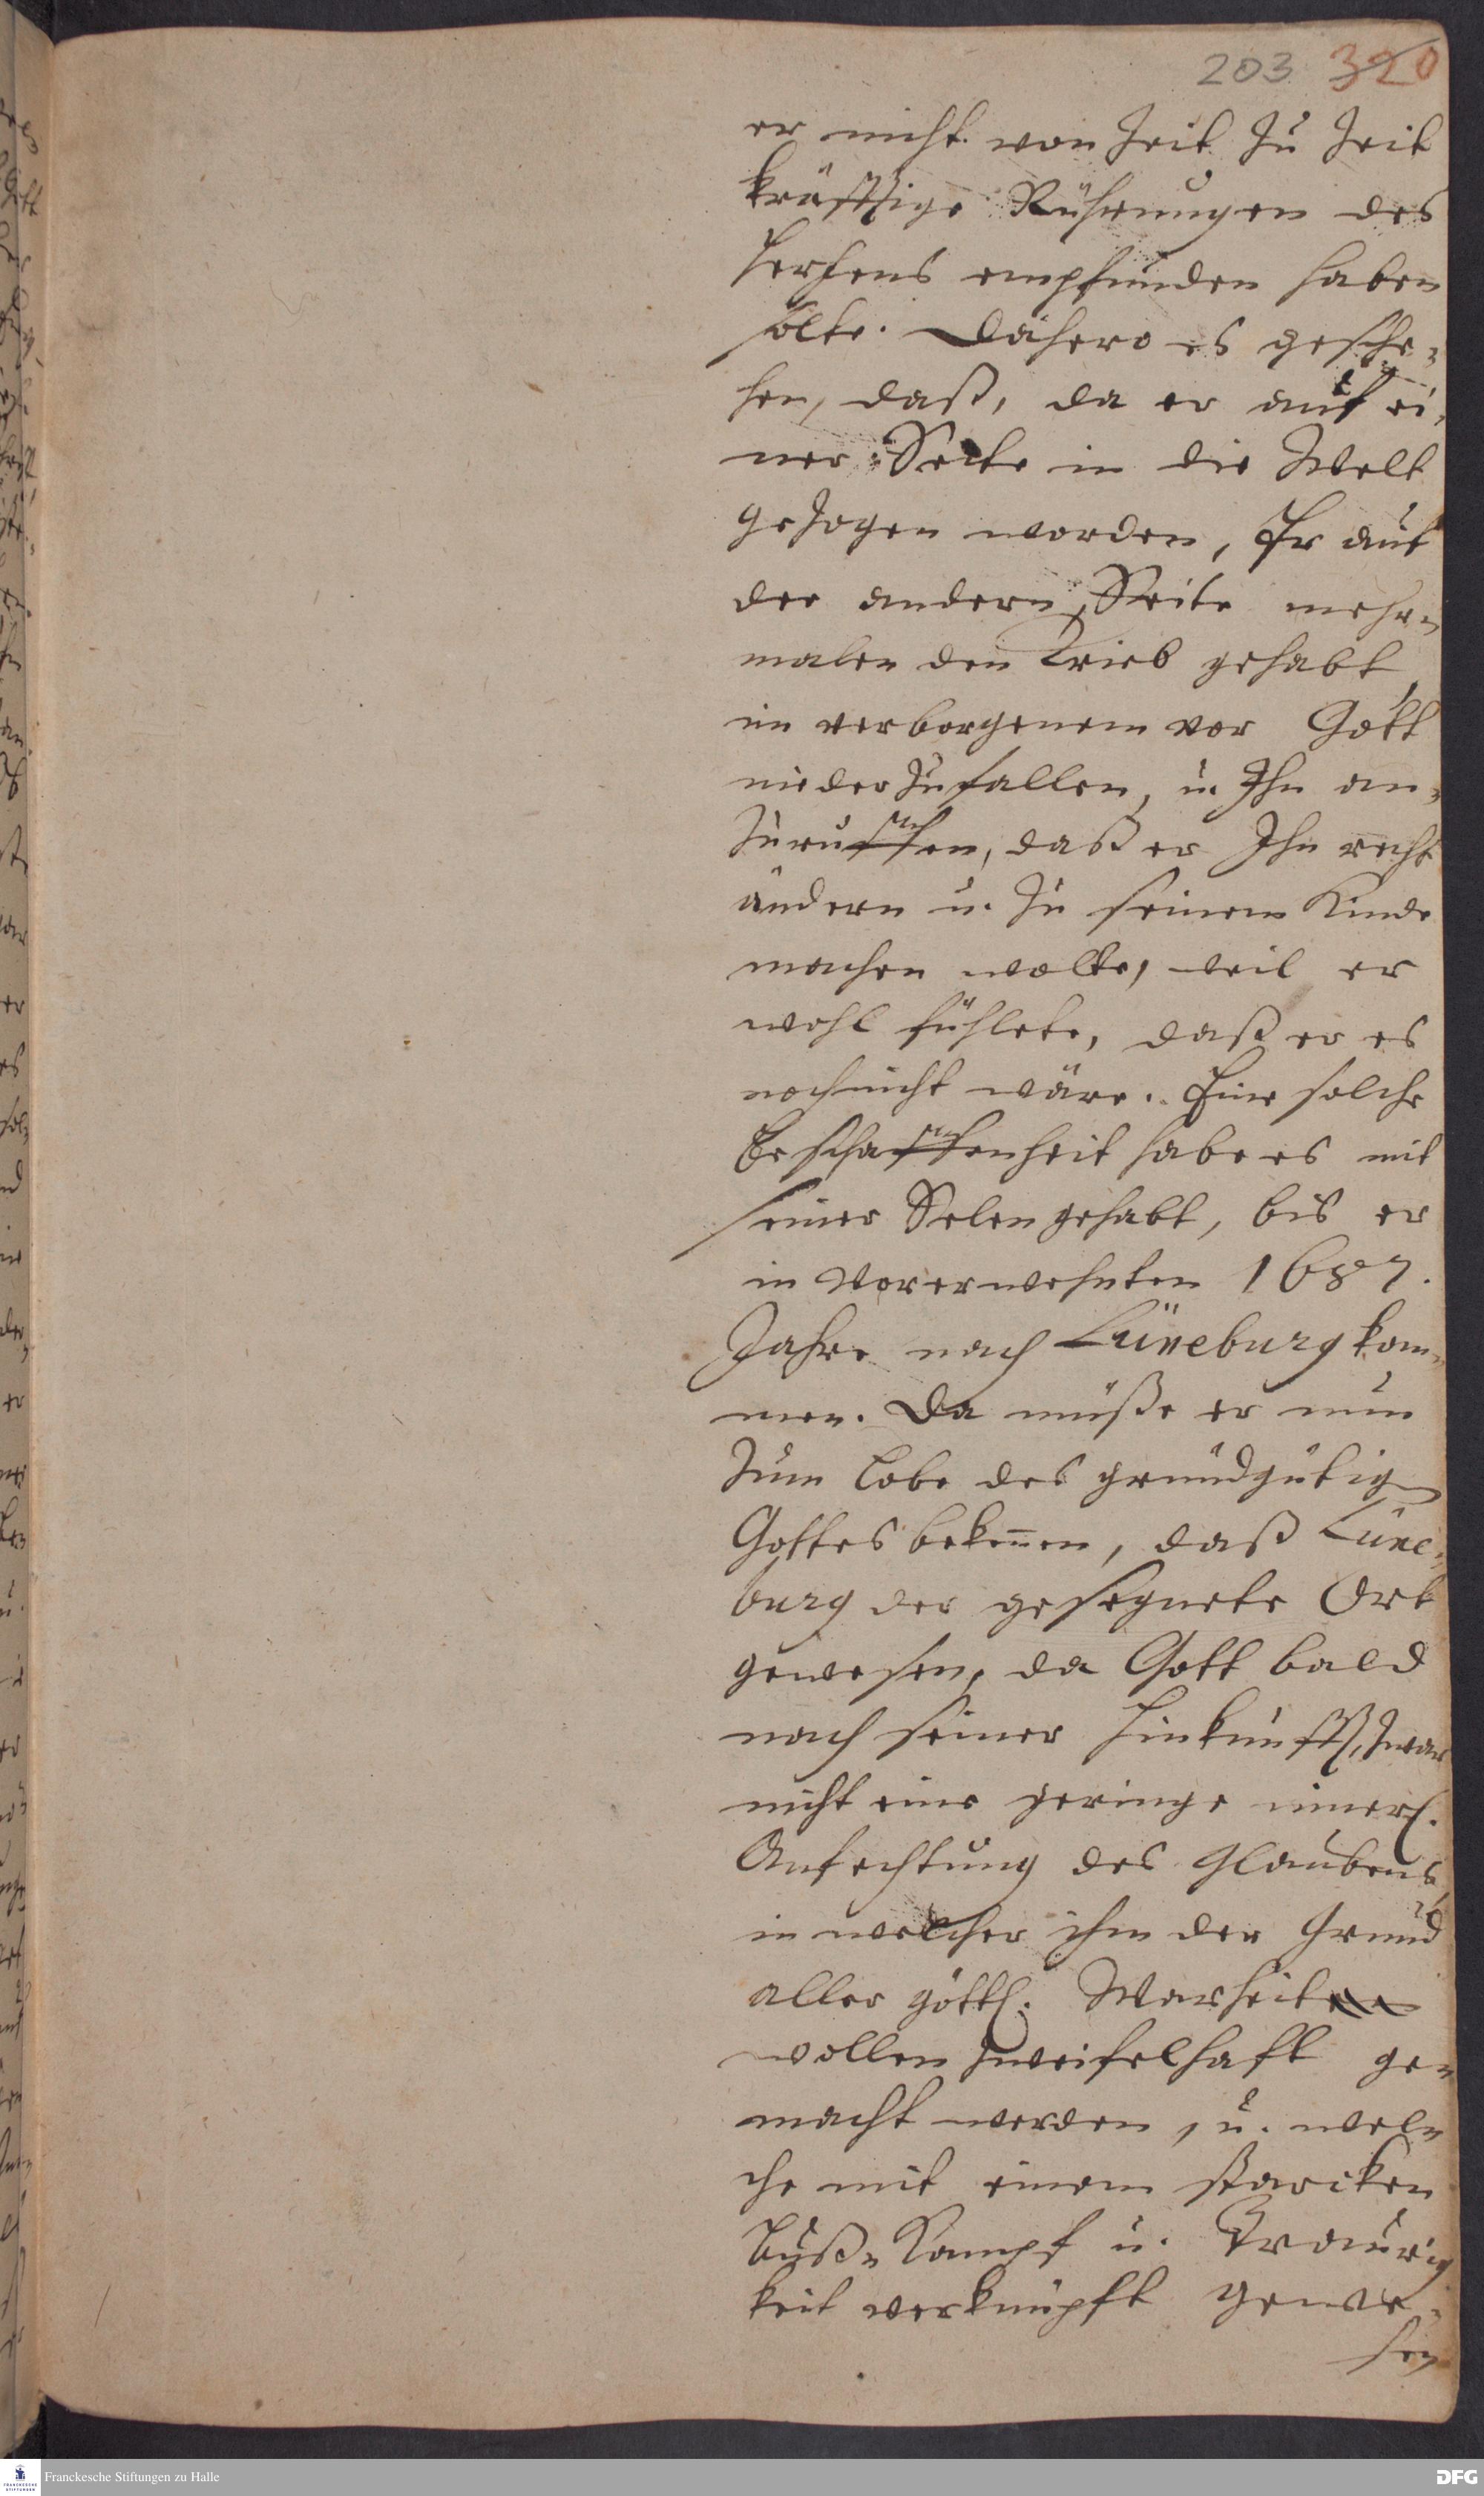 203 320
er nicht von Zeit zu Zeit
kräfftige Rührungen des
Hertzens empfunden haben
solte. Dahero es gesche-
hen, daß, da er auf ei-
ner Seite in die Welt
gezogen worden, Er auf
der andern Seite mehr-
malen den Trieb gehabt
im verborgenem vor Gott
nieder zu fallen, u. Ihn an-
zuruffen, daß er Ihn recht
ändern u. zu seinem Kinde
machen wolte, weil er
wohl fühlete, daß er es
noch nicht wäre. Eine solche
Beschaffenheit habe es mit
seiner Selen gehabt, bis er
in vorerwehnten 1687.
Jahre nach Lüneburg kom-
men. Da müße er nun
zum Lobe des grundgütigen
Gottes bekeñen, daß Lüne-
burg der gesegnete Ort
gewesen, da Gott bald
nach seiner Hinkunfft, zwar
nicht eine geringe innerl.
Anfechtung des Glaubens,
in welcher ihm der Grund
aller göttl. Warheit
wollen zweifelhaft ge-
macht werden, u. wel-
che mit einem starcken
Buß-Kampf u. Traurig
keit verknüpft gewe-
sen
Franckesche Stiftungen zu Halle
DFG